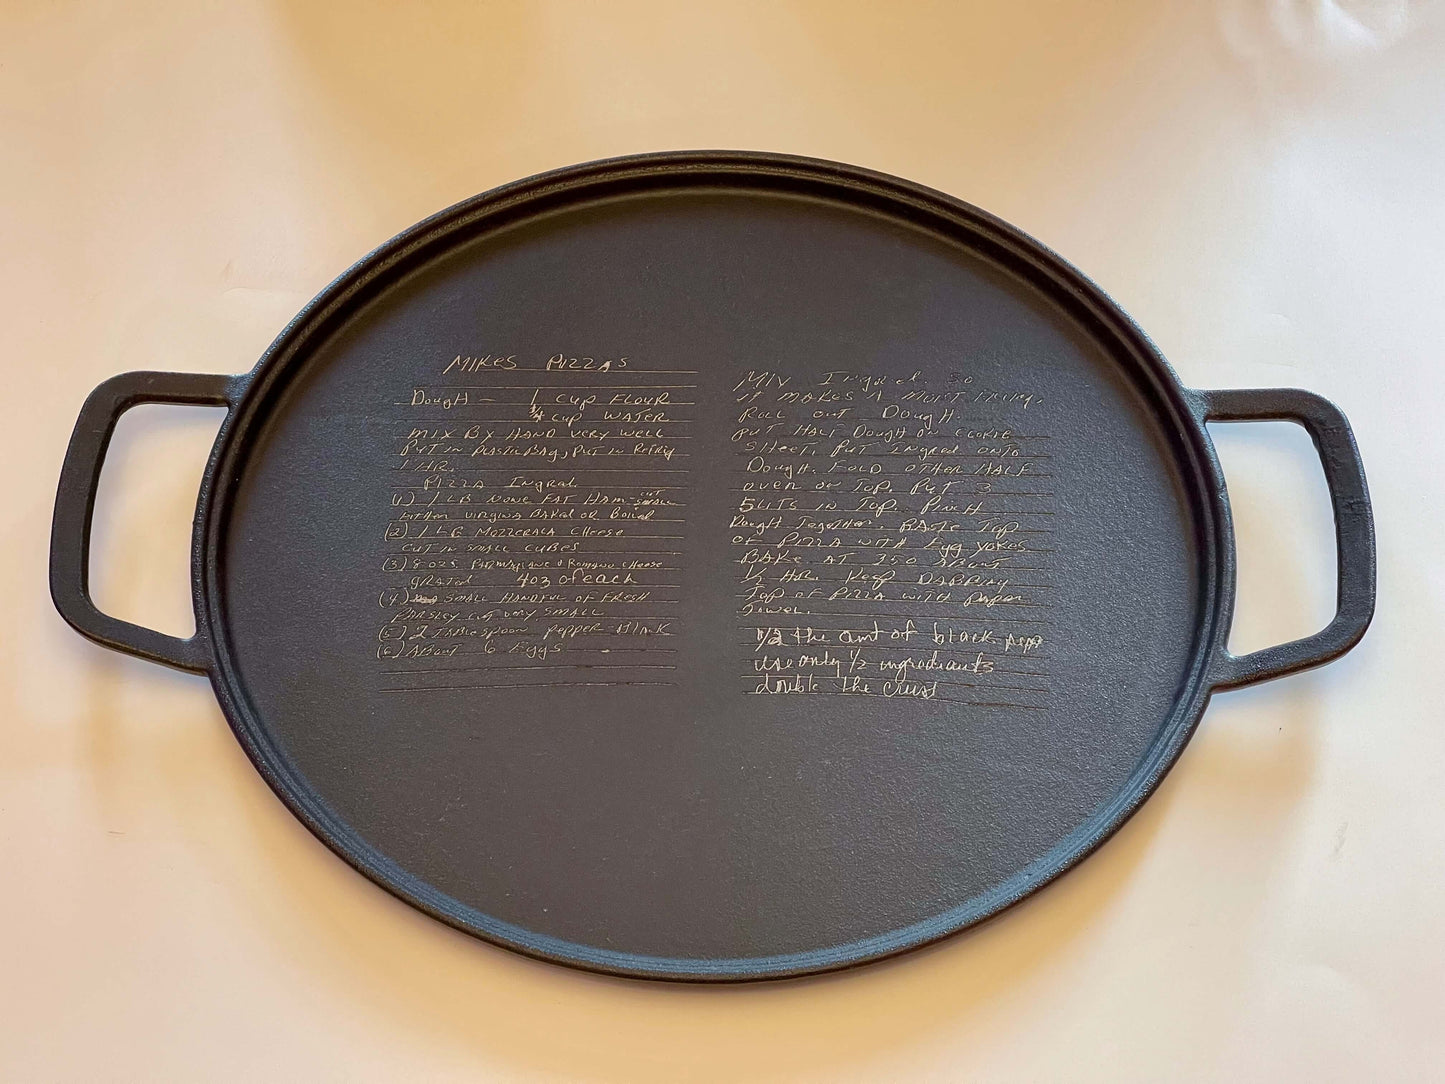 MIKES PIZZAS
Dough - 1 cup FLOUR
3/4 cup WATER
MIX BY HAND VERY WELL
PUT IN PLASTIC BAG, PUT IN REFRIG
1 HR.
PIZZA Ingred.
(1) 1 LB NONE FAT HAM - CUT SMALL
EITHER VIRGINA BAKED OR BOILED
(2) 1 LB MOZZERALA CHEESE
CUT IN SMALL CUBES
(3) 8 OZS. PARMAGIANE & ROMANO CHEESE
GRATED 4oz of each
(4) SMALL HANDFUL OF FRESH
PARSLEY CUT VERY SMALL
(5) 2 TABLESPOON pepper - BLACK
(6) ABOUT 6 Eggs
MIX Ingred. SO
IT MAKES A MOIST FILLING.
ROLL OUT DOUGH.
PUT HALF DOUGH ON COOKIE
SHEET, PUT INGRED ONTO
DOUGH. FOLD OTHER HALF
OVER ON TOP. PUT 3
SLITS IN TOP. PINCH
DOUGH TOGETHER. BASTE TOP
OF PIZZA WITH Egg YOKES
BAKE AT 350 ABOUT
1/2 HR. KEEP DABBING
TOP OF PIZZA WITH PAPER
TOWEL.
1/2 the amt of black pepp
use only 1/2 ingrediants
double the crust